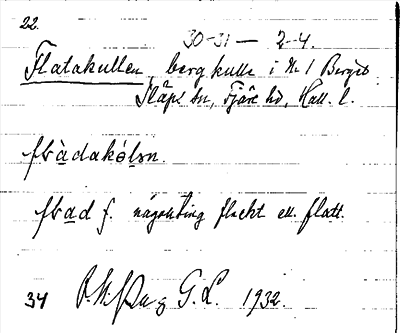 22.
30-31 — 2-4.
Flatakullen, bergkulle i № 1 Berget
Släps sn, Fjäre hd, Hall. l.
flàdakólən.
flad f. någonting flackt ell. flatt.
34 G. L. 1932.